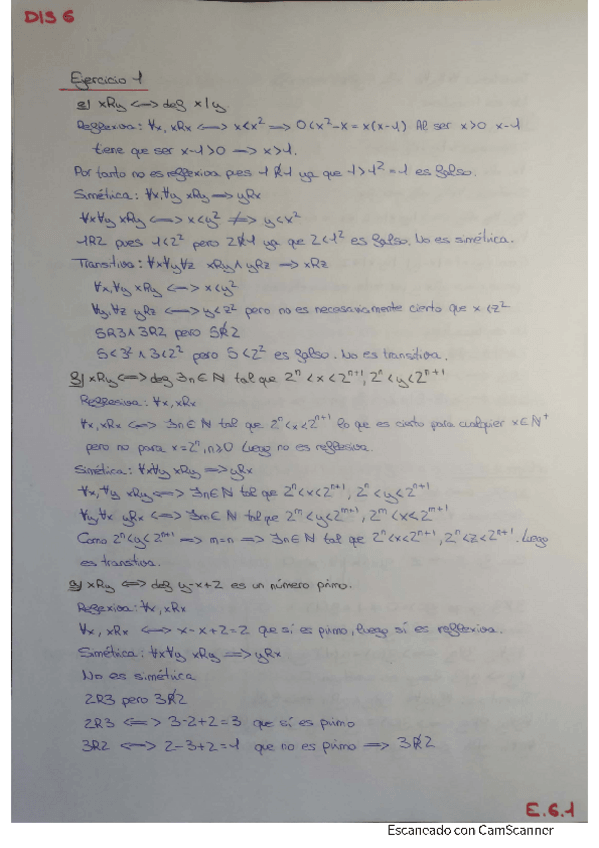 DIS 6
Ejercicio 1
e) xRy <=> def x|y.
Reflexiva: ∀x, xRx <=> x<x² => 0<x²-x = x(x-1) Al ser x>0 x-1
tiene que ser x-1>0 => x>1.
Por tanto no es reflexiva pues 1R̸1 ya que 1>1²=1 es falso.
Simétrica: ∀x,∀y xRy => yRx
∀x∀y xRy <=> x<y² ≠> y<x²
1R2 pues 1<2² pero 2R̸1 ya que 2<1² es falso. No es simétrica.
Transitiva: ∀x∀y∀z xRy ∧ yRz => xRz
∀x,∀y xRy <=> x<y²
∀y,∀z yRz <=> y<z² pero no es necesariamente cierto que x<z²
5R3 ∧ 3R2 pero 5R̸2
5<3² ∧ 3<2² pero 5<2² es falso. No es transitiva.
f) xRy <=> def ∃n∈ℕ tal que 2ⁿ<x<2ⁿ⁺¹, 2ⁿ<y<2ⁿ⁺¹
Reflexiva: ∀x, xRx
∀x, xRx <=> ∃n∈ℕ tal que 2ⁿ<x<2ⁿ⁺¹ lo que es cierto para cualquier x∈ℕ⁺
pero no para x=2ⁿ, n≥0 luego no es reflexiva.
Simétrica: ∀x∀y xRy => yRx
∀x,∀y xRy <=> ∃n∈ℕ tal que 2ⁿ<x<2ⁿ⁺¹, 2ⁿ<y<2ⁿ⁺¹
∀y,∀x yRx <=> ∃m∈ℕ tal que 2ᵐ<y<2ᵐ⁺¹, 2ᵐ<x<2ᵐ⁺¹
Como 2ⁿ<y<2ⁿ⁺¹ => m=n => ∃n∈ℕ tal que 2ⁿ<x<2ⁿ⁺¹, 2ⁿ<z<2ⁿ⁺¹. Luego
es transitiva.
g) xRy <=> def y-x+2 es un número primo.
Reflexiva: ∀x, xRx
∀x, xRx <=> x-x+2=2 que sí es primo, luego sí es reflexiva.
Simétrica: ∀x∀y xRy => yRx
No es simétrica
2R3 pero 3R̸2
2R3 <=> 3-2+2=3 que sí es primo
3R2 <=> 2-3+2=1 que no es primo => 3R̸2
E.6.1
Escaneado con CamScanner